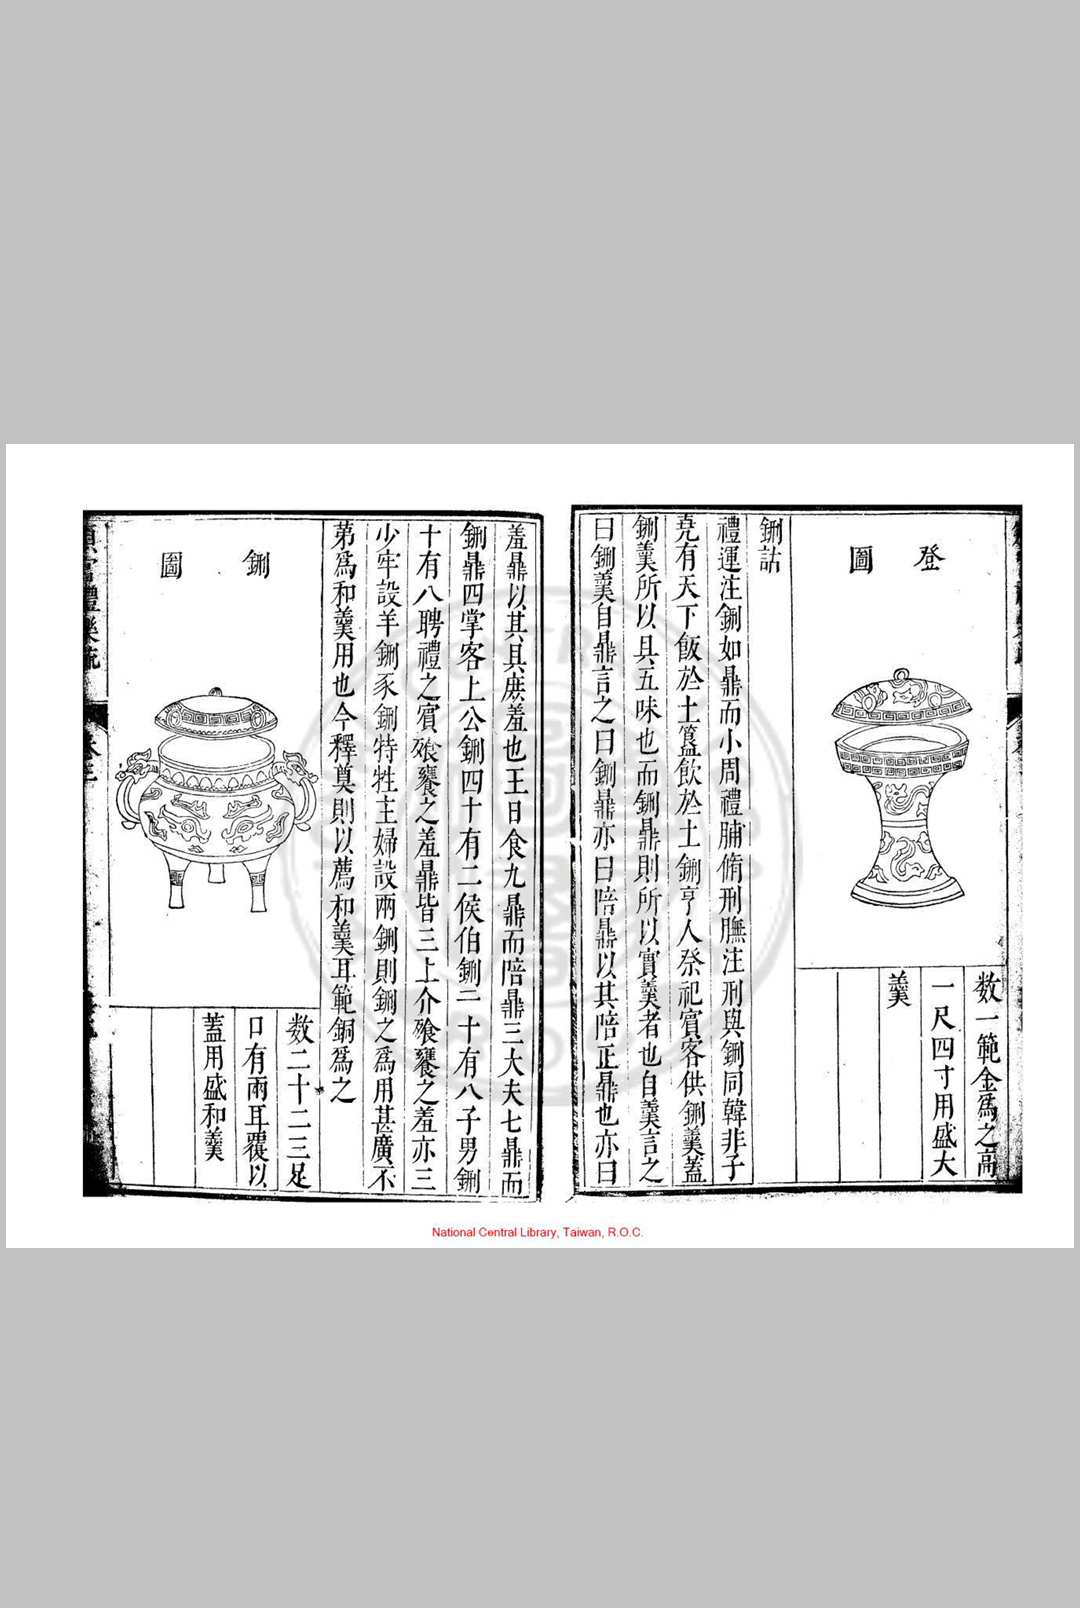 登圖
数一範金爲之高
一尺四寸用盛大
羹
鉶詁
禮運注鉶如鼎而小周禮脯脩刑膴注刑與鉶同韓非子
堯有天下飯於土簋飲於土鉶亨人祭祀賓客供鉶羹蓋
鉶羹所以具五味也而鉶鼎則所以實羹者也自羹言之
曰鉶羹自鼎言之曰鉶鼎亦曰陪鼎以其陪正鼎也亦曰
羞鼎以其具庶羞也王日食九鼎而陪鼎三大夫七鼎而
鉶鼎四掌客上公鉶四十有二侯伯鉶二十有八子男鉶
十有八聘禮之賓飧饔之羞鼎皆三上介飧饔之羞亦三
少牢設羊鉶豕鉶特牲主婦設兩鉶則鉶之爲用甚廣不
第爲和羹用也今釋奠則以薦和羹耳範銅爲之
鉶圖
数二十二三足
口有兩耳覆以
蓋用盛和羹
禮樂疏
National Central Library, Taiwan, R.O.C.